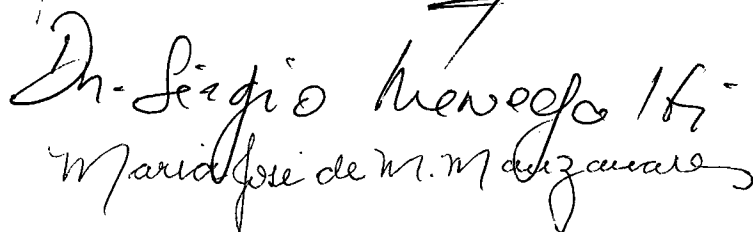 Dr. Sérgio Menegatti
Maria José de M. Manzanares